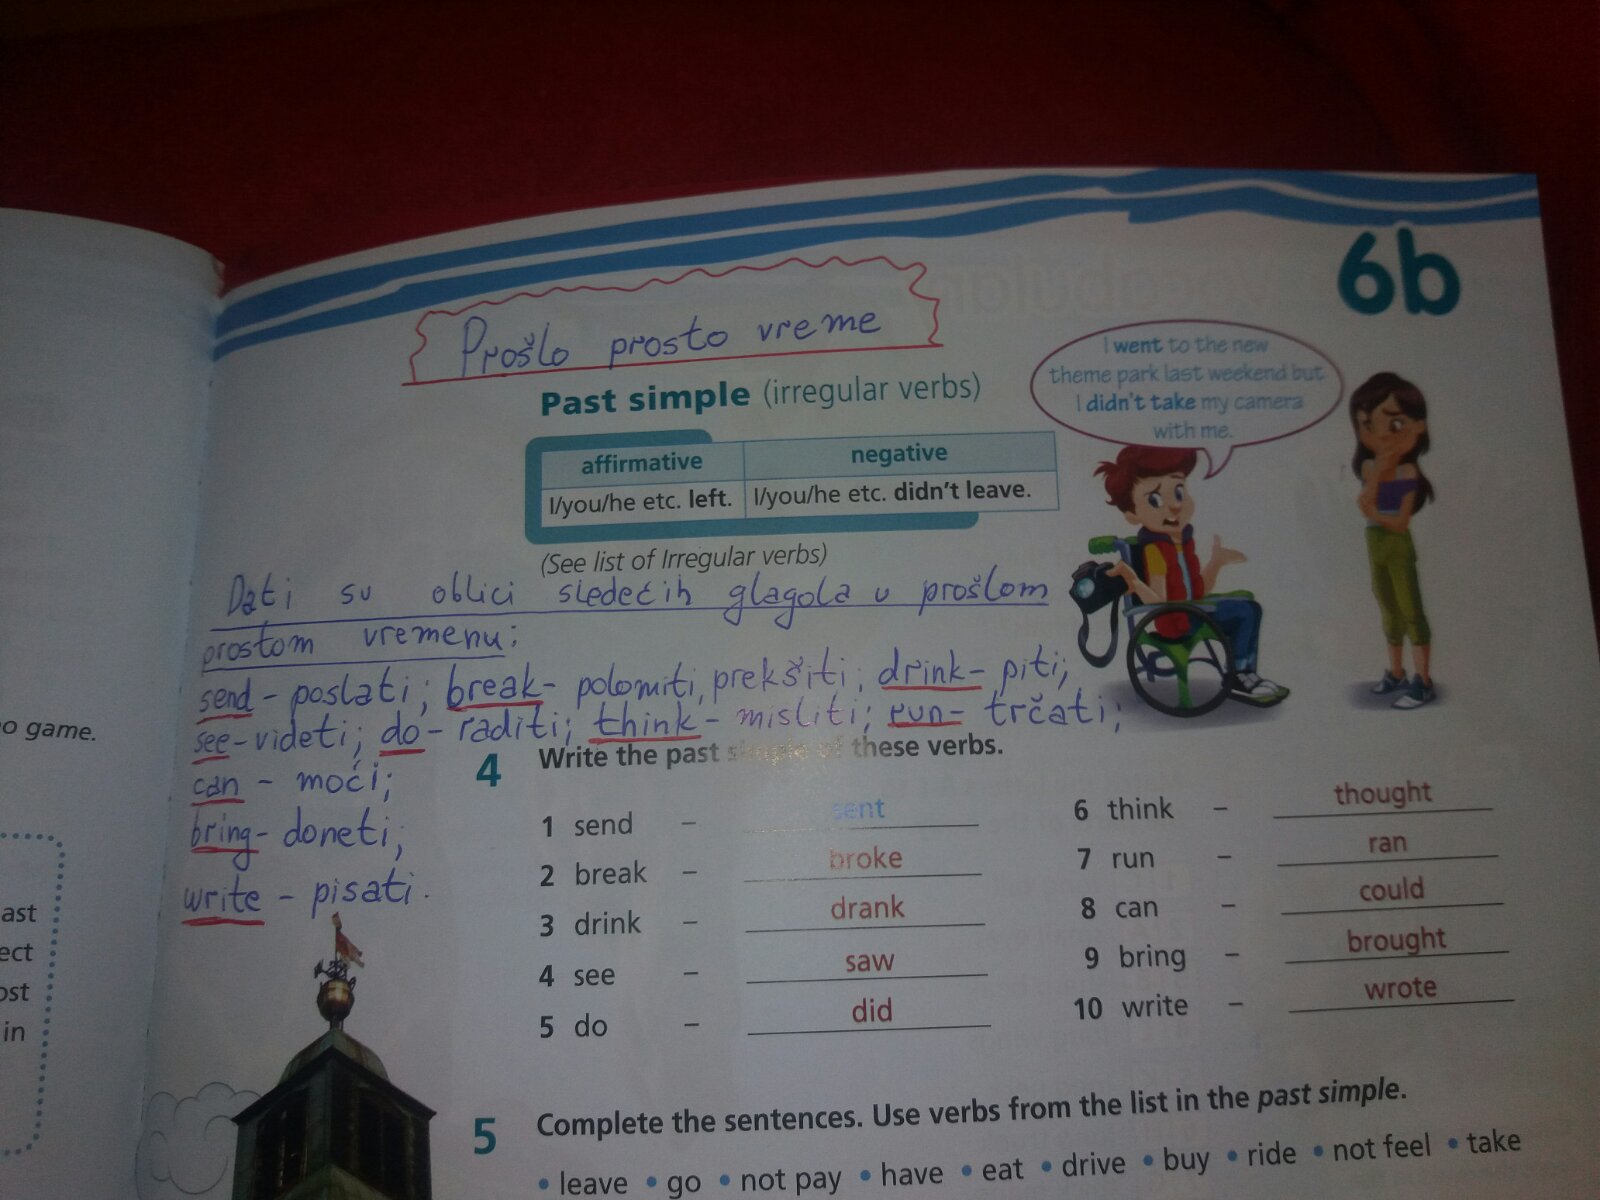 6b
Prošlo prosto vreme
Past simple (irregular verbs)
I went to the new
theme park last weekend but
I didn't take my camera
with me.
affirmative negative
I/you/he etc. left. I/you/he etc. didn't leave.
(See list of Irregular verbs)
Dati su oblici sledećih glagola u prošlom
prostom vremenu:
send - poslati; break - polomiti, prekšiti; drink - piti;
see - videti; do - raditi; think - misliti; run - trčati;
can - moći;
bring - doneti;
write - pisati.
4 Write the past simple of these verbs.
1 send - sent
2 break - broke
3 drink - drank
4 see - saw
5 do - did
6 think - thought
7 run - ran
8 can - could
9 bring - brought
10 write - wrote
5 Complete the sentences. Use verbs from the list in the past simple.
• leave • go • not pay • have • eat • drive • buy • ride • not feel • take
o game.
ast
ect
ost
in